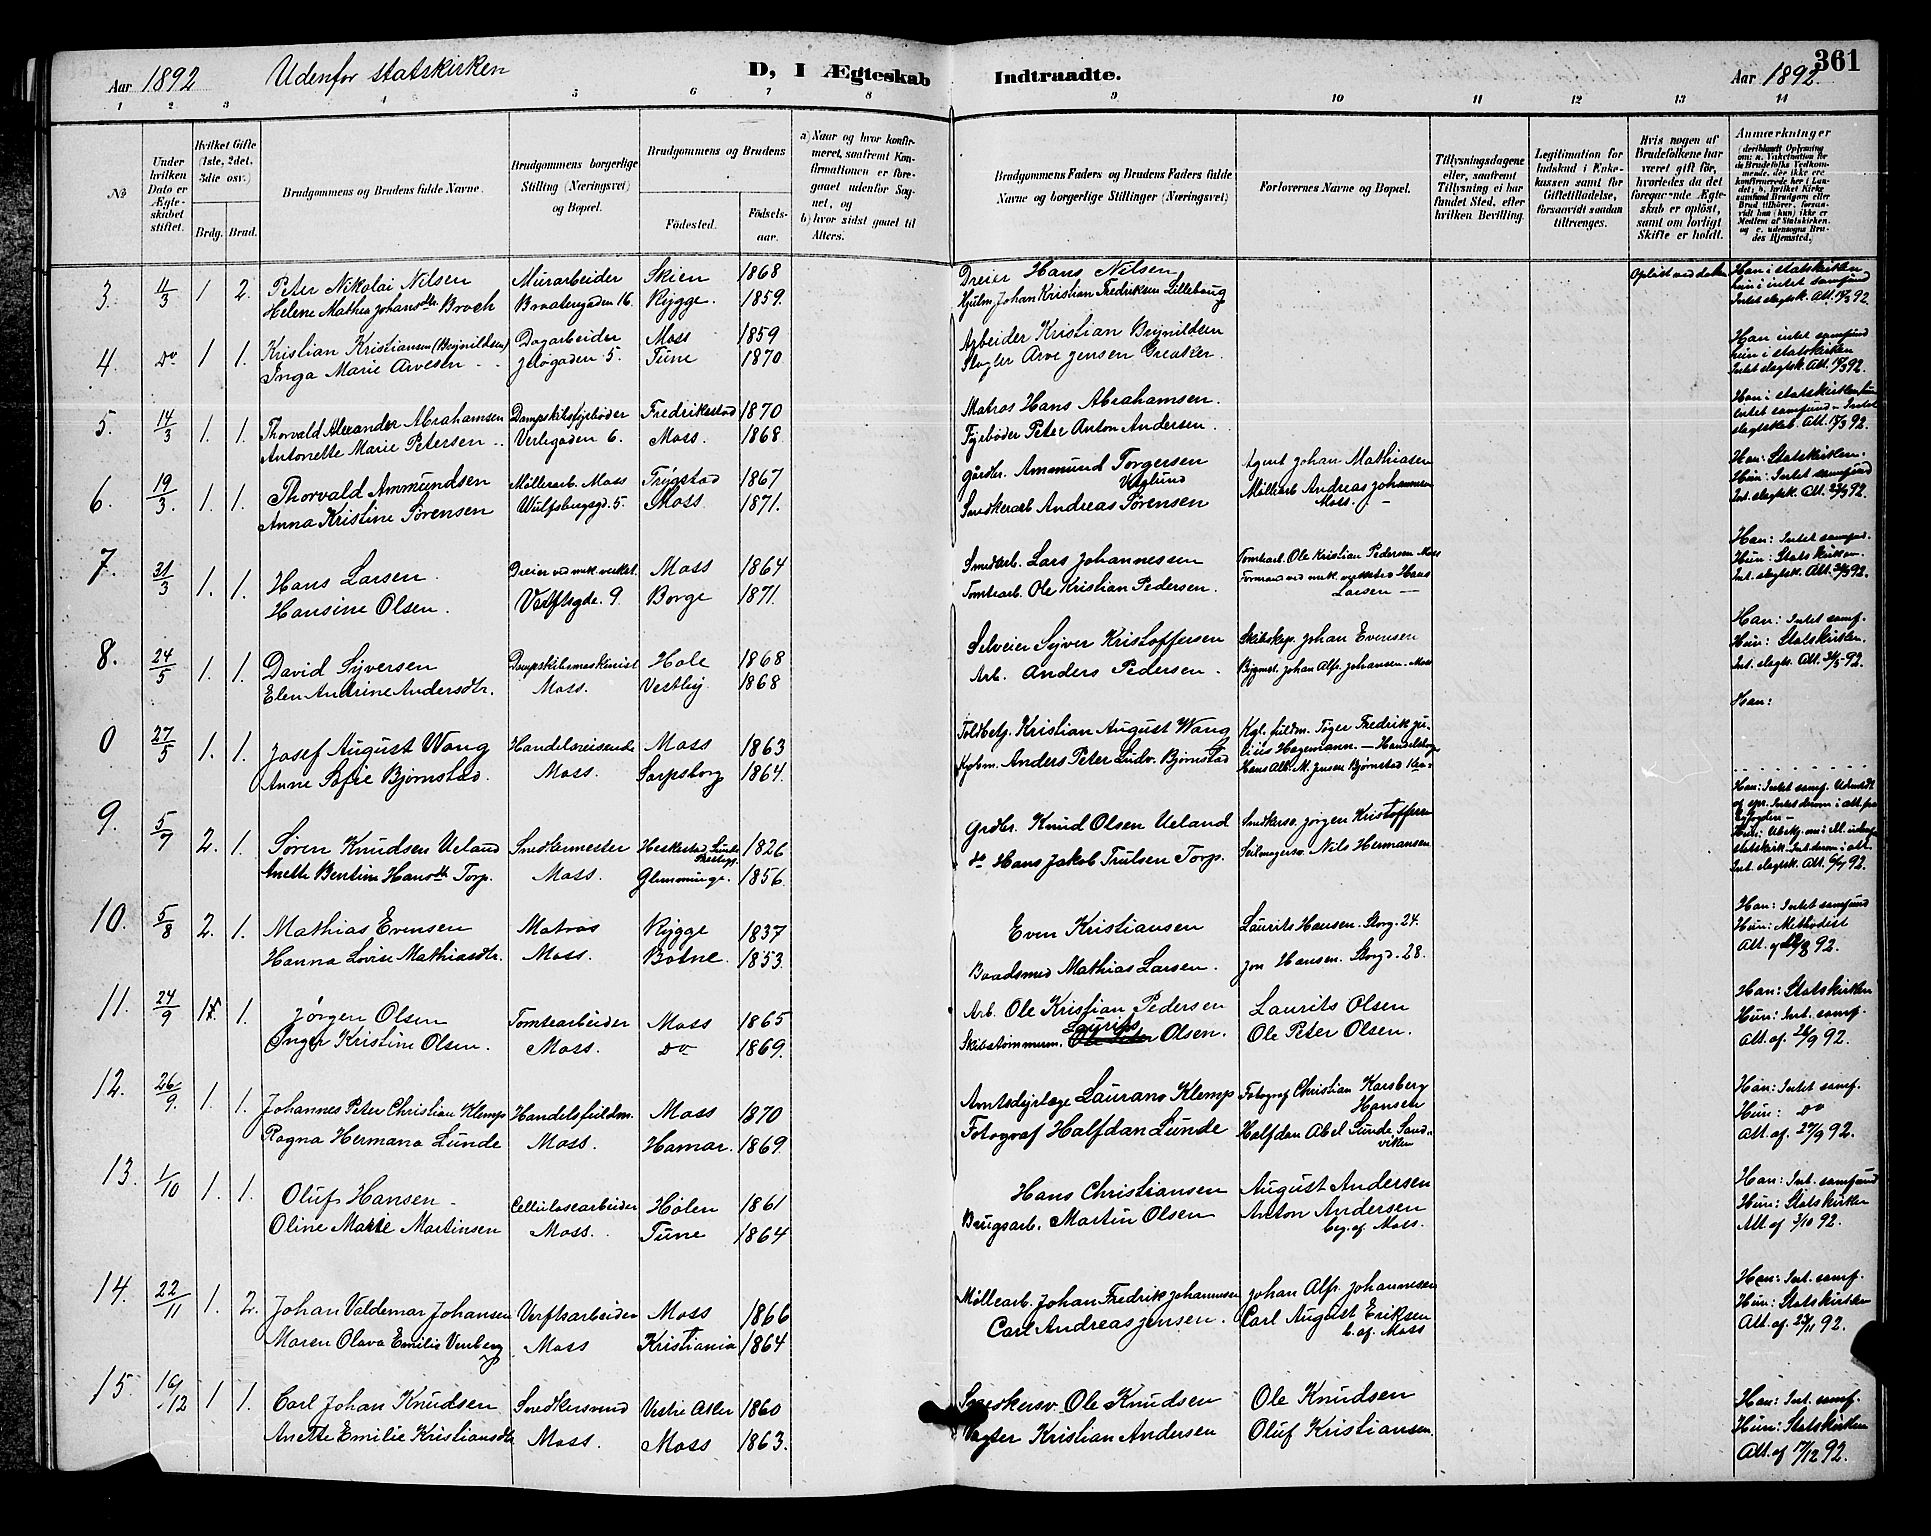 361
Aar 1892 Udenfor statskirken D, I Ægteskab Indtraadte. Aar 1892
1 2 3 4 5 6 7 8 9 10 11 12 13 14
No
Under hvilken Dato er Ægteskabet stiftet.
Hvilket Gifte (1ste, 2det, 3die osv.).
Brdg. Brud.
Brudgommens og Brudens fulde Navne.
Brudgommens borgerlige Stilling (Næringsvei) og Bopæl.
Brudgommens og Brudens
Fødested. Fødselsaar.
a) Naar og hvor konfirmeret, saafremt Konfirmationen er foregaaet udenfor Sognet, og
b) hvor sidst gaaet til Alters.
Brudgommens Faders og Brudens Faders fulde Navne og borgerlige Stillinger (Næringsvei)
Forlovernes Navne og Bopæl.
Tillysningsdagene eller, saafremt Tillysning ei har fundet Sted, efter hvilken Bevilling.
Legitimation for Indskud i Enkekassen samt for Giftetilladelse, forsaavidt saadan tiltrænges.
Hvis nogen af Brudefolkene har været gift før, hvorledes da det foregaaende Ægteskab er opløst, samt om lovligt Skifte er holdt.
Anmærkninger
3. 4/3 1 2. Peter Nikolai Nilsen Murarbeider Skien 1868 Dreier Hans Nilsen Opløst ved døden Han i statskirken
Helene Mathea Johansdtr. Broch Braatengaden 16. Rygge. 1859. Hjulm. Johan Kristian Fredriksen Lillebaug hun i intet samfund
Intet slegtsk. Att. 92.
4. Do 1 1. Kristian Kristiansen (Brynildsen) Dagarbeider Moss 1859 Arbeider Kristian Brynildsen Han intet samfund
Inga Marie Arvesen Jeløgaden 5. Tune 1870 Slagter Arve Jensen Greaker. hun i statskirken
Intet slegtsk. Att. 92.
5. 14/3 1. 1. Thorvald Alexander Abrahamsen Dampskibsfyrbøder Fredrikstad 1870 Matros Hans Abrahamsen. Han i statskirken hun
Antonette Marie Petersen Verlegaden 6. Moss. 1868. Fyrbøder Peter Anton Andersen. intet samfund - Intet
slegtskab. Att. 92.
6. 19/3. 1. 1. Thorvald Ammundsen Møllerarb. Moss Trygstad 1867 Gårdbr. Ammund Torgersen Agent Johan Mathiasen Han: Statskirken.
Anna Kristine Sørensen Wulfsbergsgd. 5. Moss. 1871. Snedkerarb Andreas Sørensen Møllearb Andreas Johannesen Moss. Hun: Intet samfund
Int. slegtsk. Att. 92.
7. 31/3 1. 1. Hans Larsen. Dreier ved mek verkst. Moss 1864 Smedarb. Lars Johannessen Tomtearb. Ole Kristian Pedersen Moss Han: Intet samfund.
Hansine Olsen. Verftsgde. 9. Borge 1871. Tomtearb. Ole Kristian Pedersen. Formand ved mek verksted Hans Larsen Hun: Statskirken.
Int. slegtsk. Att. 92.
8. 24/5 1. 1. David Syversen Dampskibsmaskinist Hole 1868 Selveier Syver Kristoffersen Skibskap. Johan Evensen Han: Intet samf.
Elen Andrine Andersdtr. Moss. Vestby. 1868 Arb. Anders Pedersen. Bygmst. Johan Alfr. Johansen. Moss Hun: Statskirken.
Int. slegtsk. Att. 92.
0 27/5 1. 1. Josef August Wang Handelsreisende Moss 1863 Toldbetj. Kristian August Wang Kgl. fuldm. Tøger Fredrik Ju- Han:
Anne Sofie Bjørnstad. Moss. Sarpsborg 1864. Kjøbm. Anders Peter Ludv. Bjørnstad lius Hagemann. - Handelsborg
Hans Alb. M. Jensen Bjørnstad
9. 5/7 2. 1. Søren Knudsen Ueland Snedkermester Heskestad 1826 Grdbr. Knud Olsen Ueland Snedkersv. Jørgen Kristoffersen Han: Intet samf.
Anette Bentine Hansdtr Torp. Moss. Glemminge. 1856. do Hans Jakob Trulsen Torp. Seilmagersv. Nils Hermansen
Int. slegtsk. Att. 92.
10. 5/8 2. 1. Mathias Evensen Matros Rygge 1837 Even Kristiansen Laurits Hansen. Storg. 24. Han: Intet samfund
Hanna Lovise Mathiasdtr. Moss. Botne. 1853. Baadsmed Mathias Larsen. Jon Hansen. Storgd. 28. Hun: Methodist
Att. 92.
11. 24/9 1 1. Jørgen Olsen Tomtearbeider Moss 1865 Arb. Ole Kristian Pedersen Laurits Olsen Han: Statskirken
Inger Kristine Olsen. Moss. do 1869. Skibstømmerm. Laurits Olsen. Ole Peter Olsen. Hun: Int. samf.
Att. af. 92.
12. 26/9. 1. 1. Johannes Peter Christian Klemp Handelsfuldm. Moss 1870 Amtsdyrlæge Laurans Klemp Fotograf Christian Karsberg Hansen Han: Intet samf.
Ragna Hermana Lunde Moss. Hamar. 1869. Fotograf Halfdan Lunde Halfdan Abel Lunde Sandviken Hun: do
Att. af. 27/9 92.
13. 1/10 1. 1. Oluf Hansen Cellulosearbeider Hølen 1861 Hans Christiansen August Andersen Han: Int. samfund
Oline Marie Martinsen Moss. Tune 1864 Brugsarb. Martin Olsen Anton Andersen beg. af Moss. Hun: Statskirken
Att. af 3/10 92.
14. 22/11 1. 2. Johan Valdemar Johansen Verftsarbeider Moss 1866 Møllearb. Johan Fredrik Johannesen Johan Alfr. Johannesen Han: Int. samf.
Maren Olava Emilie Venberg Moss Kristiania 1864 Carl Andreas Jensen. Carl August Eriksen b. af. Moss Hun: Statskirken
Att. af. 23/11 92.
15. 16/12 1 1. Carl Johan Knudsen Snedkersvend Vestre Aker 1860 Snedkersv. Ole Knudsen Ole Knudsen Han: Int. samf.
Anette Emilie Kristiansdtr Moss. Moss 1863. Vagter Kristian Andersen Oluf Kristiansen. Hun: Statskirken
Att. af 17/12 92.